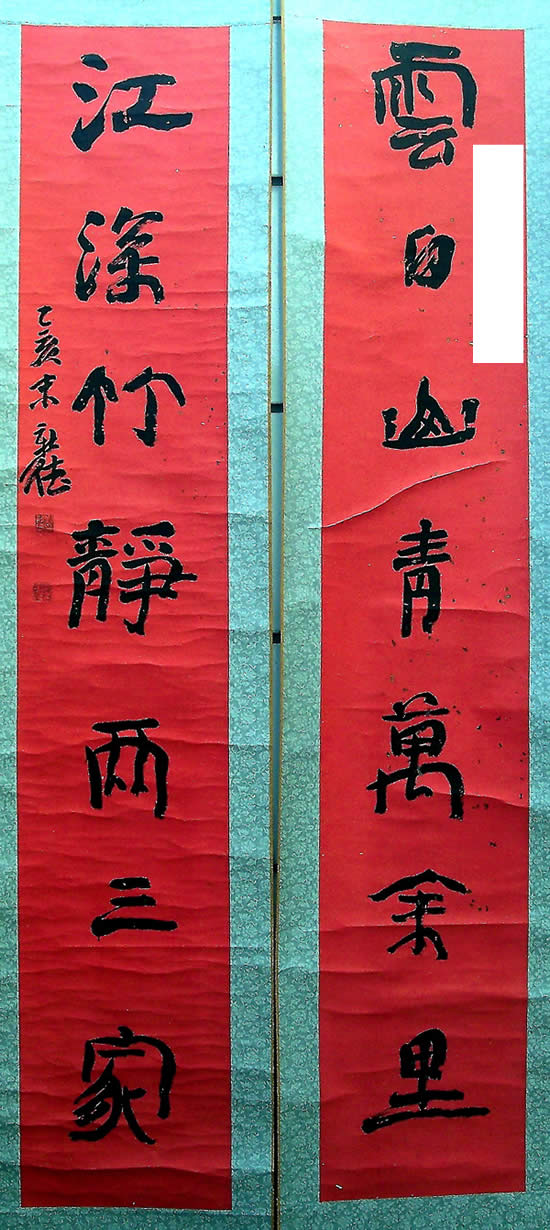 雲白山青萬余里
江深竹靜两三家
乙亥